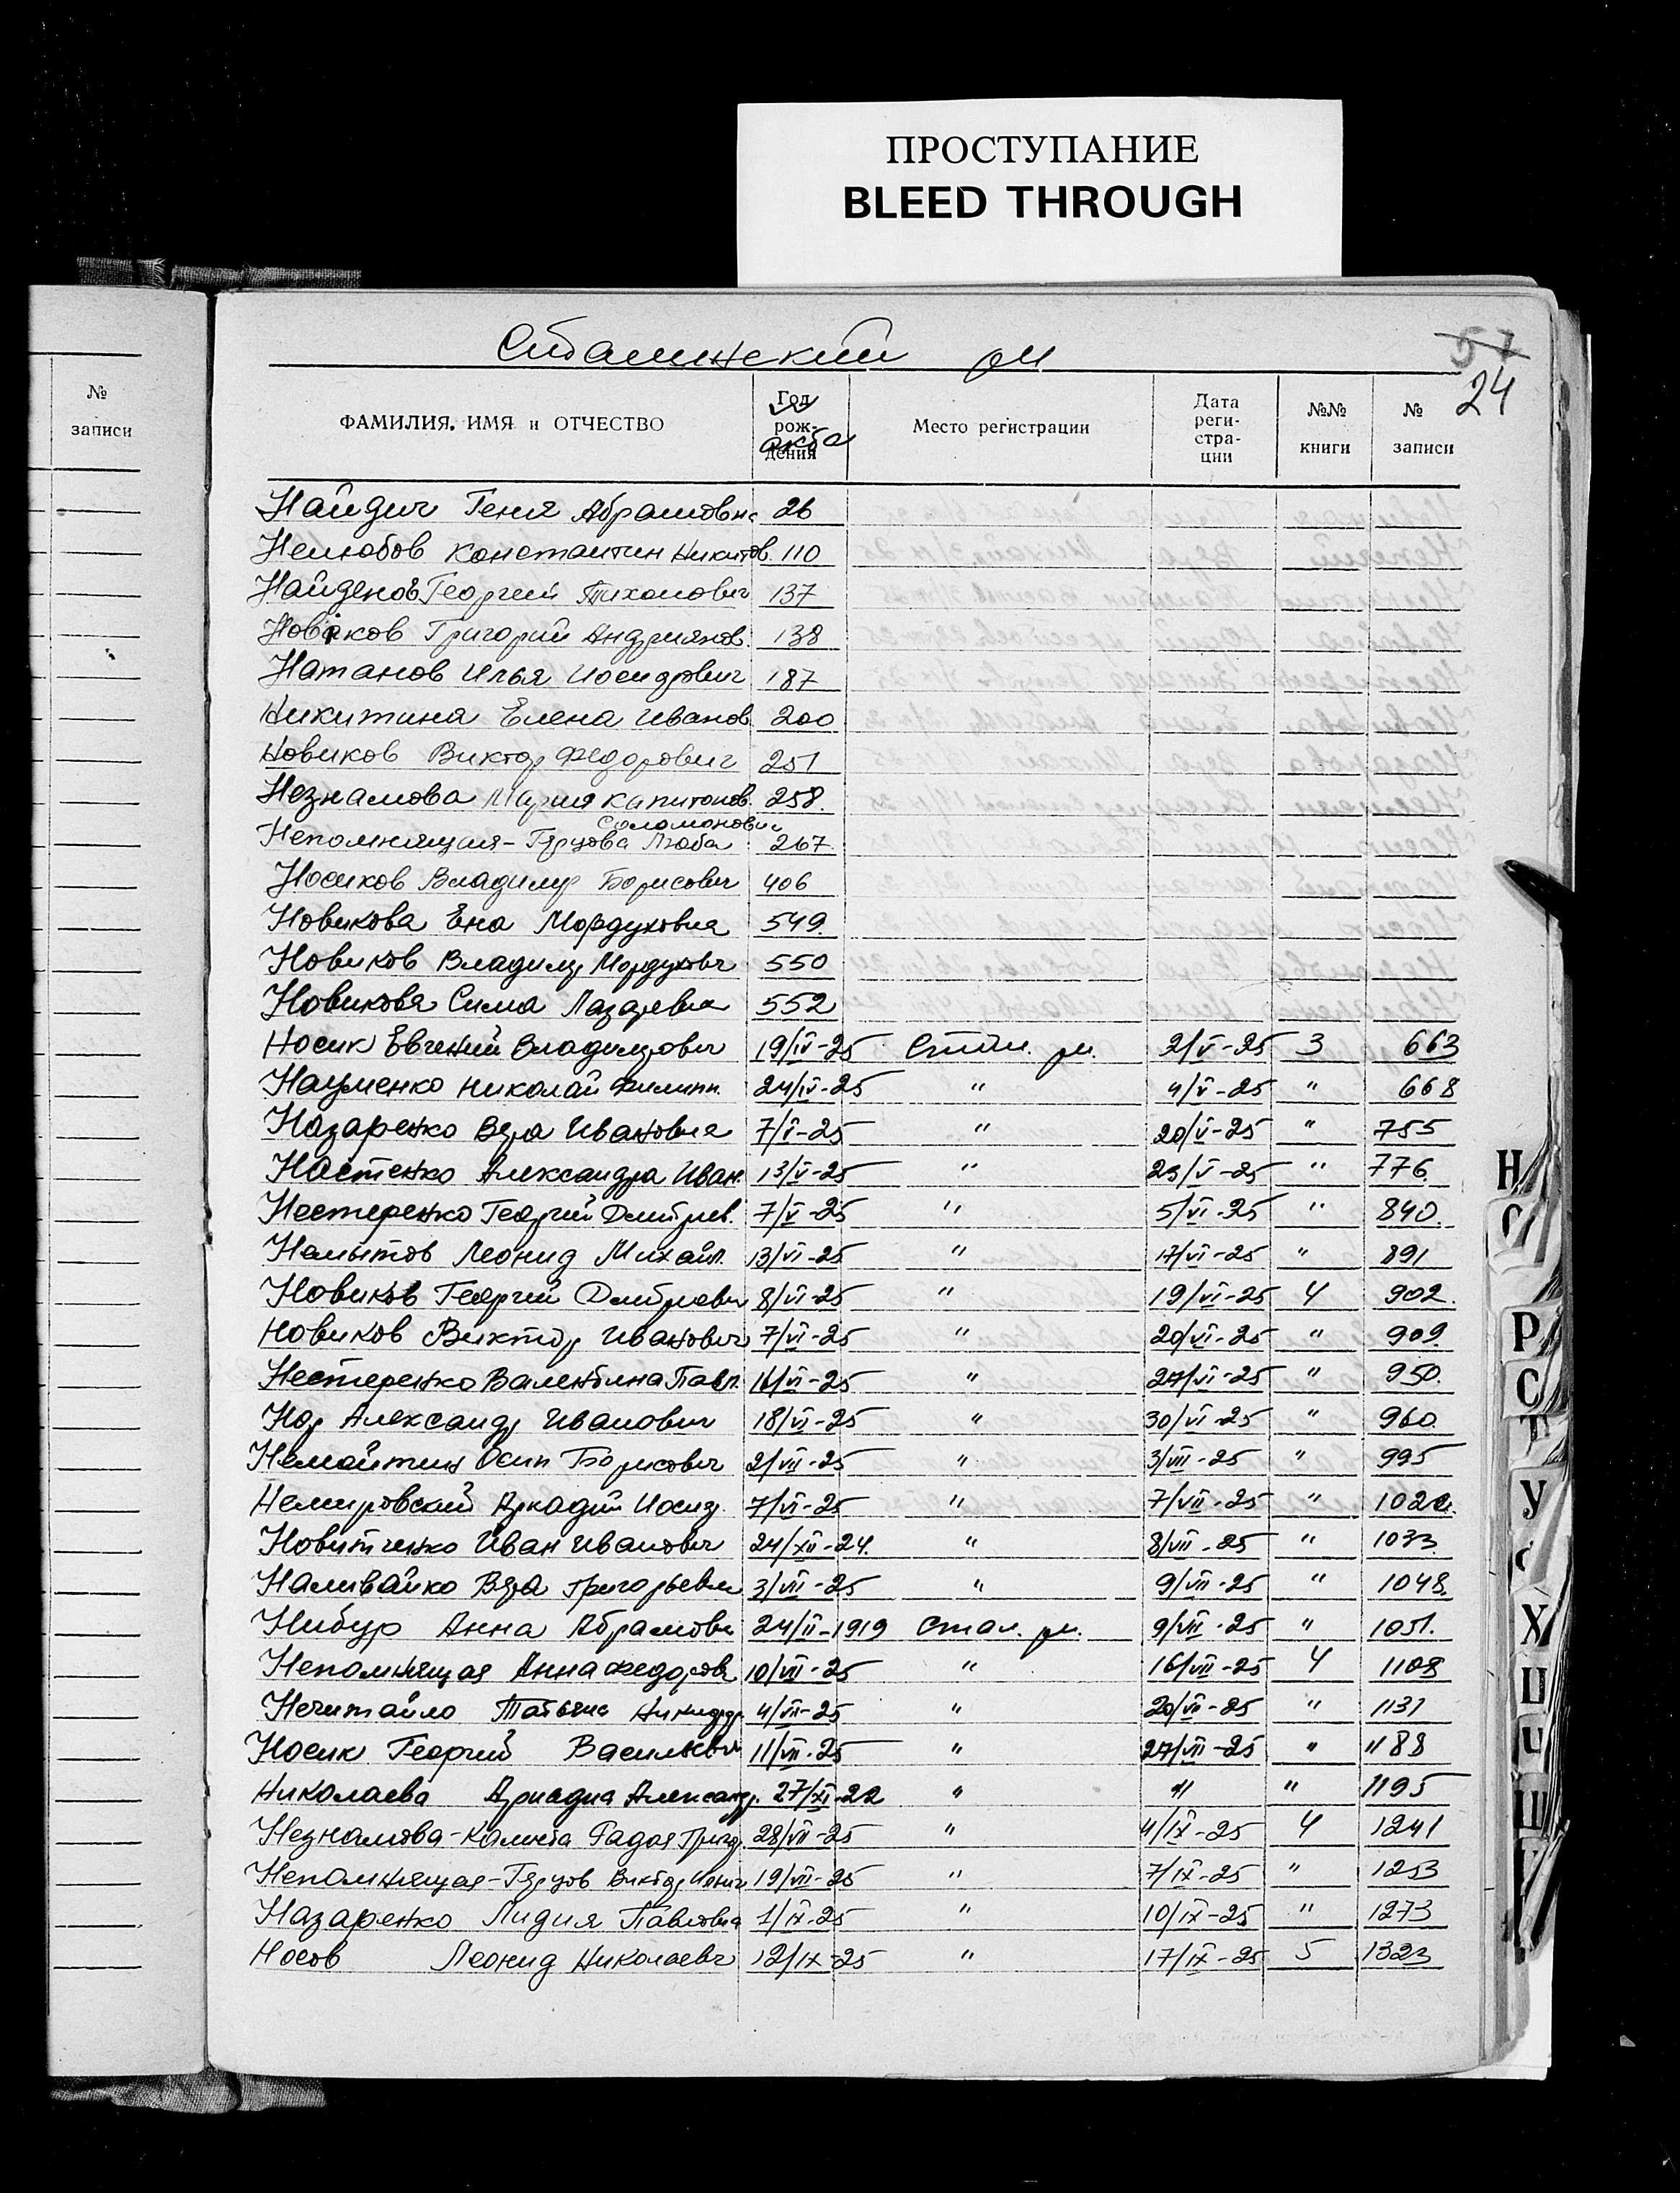 ПРОСТУПАНИЕ
BLEED THROUGH
57
24
№ записи
ФАМИЛИЯ, ИМЯ и ОТЧЕСТВО Год рож- дения акта Место регистрации Дата реги- стра- ции №№ книги № записи
Найдич Геня Абрамовна 26
Нелюбов Константин Никитов. 110
Найденов Георгий Тихонович 137
Новаков Григорий Андриянов. 138
Натанов Илья Иосифович 187
Никитина Елена Иванов. 200
Новиков Виктор Федорович 251
Незнамова Мария Капитонов. 258.
Соломоновн
Непомнящая-Герцова Люба 267
Носиков Владимир Борисович 406
Новикова Ена Мордуховна 549.
Новиков Владимир Мордухович 550
Новикова Сима Лазаревна 552
Носик Евгений Владимирович 19/IV-25 Стал. рн. 2/V-25 3 663
Науменко Николай Филипп. 24/IV-25 " 4/V-25 " 668
Назаренко Вера Ивановна 7/V-25 " 20/V-25 " 755
Настенко Александра Иван. 13/V-25 " 23/V-25 " 776.
Нестеренко Георгий Дмитриев. 7/V-25 " 5/VI-25 " 840.
Намытов Леонид Михайл. 13/VI-25 " 17/VI-25 " 891
Новиков Георгий Дмитриевич 8/VI-25 " 19/VI-25 4 902.
Новиков Виктор Иванович 7/VI-25 " 20/VI-25 " 909.
Нестеренко Валентина Павл. 16/VI-25 " 27/VI-25 " 950.
Нор Александр Иванович 18/VI-25 " 30/VI-25 " 960.
Немайтин Осип Борисович 2/VII-25 " 3/VII-25 " 995
Немировский Аркадий Иосиф. 7/VI-25 " 7/VII-25 "
Новитченко Иван Иванович 24/XII-24. " 8/VII-25 " 1033.
Наливайко Вера Григорьевна 3/VII-25 " 9/VII-25 " 1048.
Нибур Анна Абрамовн 24/II-1919 Стал. рн. 9/VII-25 " 1051.
Непомнящая Анна Федоровн 10/VII-25 " 16/VII-25 4 1108
Нечитайло Татьяна Никифор. 4/VII-25 " 20/VII-25 " 1131
Носик Георгий Васильевич 11/VII-25 " 27/VII-25 " 1188
Николаева Ариадна Александр. 27/XI-22 " " " 1195
Незнамова-Калита Радая Григор. 28/VII-25 " 4/IX-25 4 1241
Непомнящая-Герцов Виктор 19/VII-25 " 7/IX-25 " 1253
Назаренко Лидия Павловна 1/IX-25 " 10/IX-25 " 1273
Носов Леонид Николаевич 12/IX-25 " 17/IX-25 5 1323
Н
Р
С
Т
У
Х
Ц
Ш